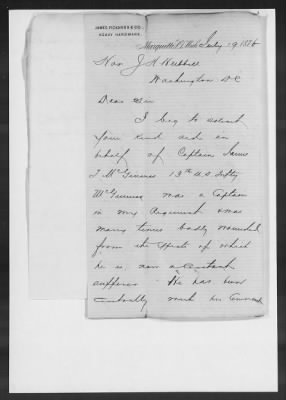 JAMES PICKANDS & CO.
HEAVY HARDWARE.
Marquette, Mich. July 19 1886
Hon J H
Washington DC
Dear Sir
I beg to solicit
your kind aid in
behalf of Captain James
T McGinniss 13th U.S. Infty
McGinniss was a Captain
in my Regiment & was
many times badly wounded
from the effects of which
he is now a constant
sufferer - He has been
with his